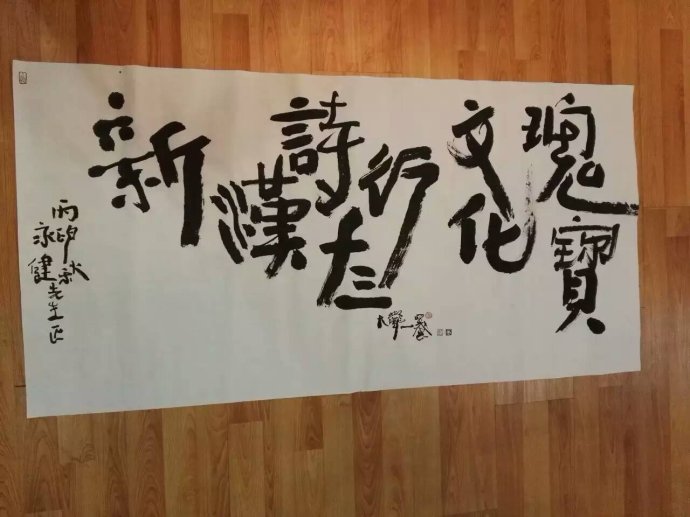 新
漢詩
大三行
文化
瑰寶
丙申秋
永健先生正